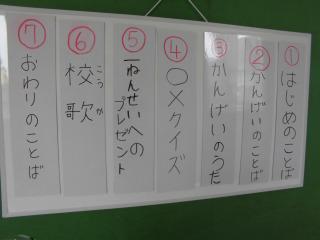 ①はじめのことば
②かんげいのことば
③かんげいのうた
④○×クイズ
⑤一ねんせいへの
プレゼント
⑥校歌
こうか
⑦おわりのことば